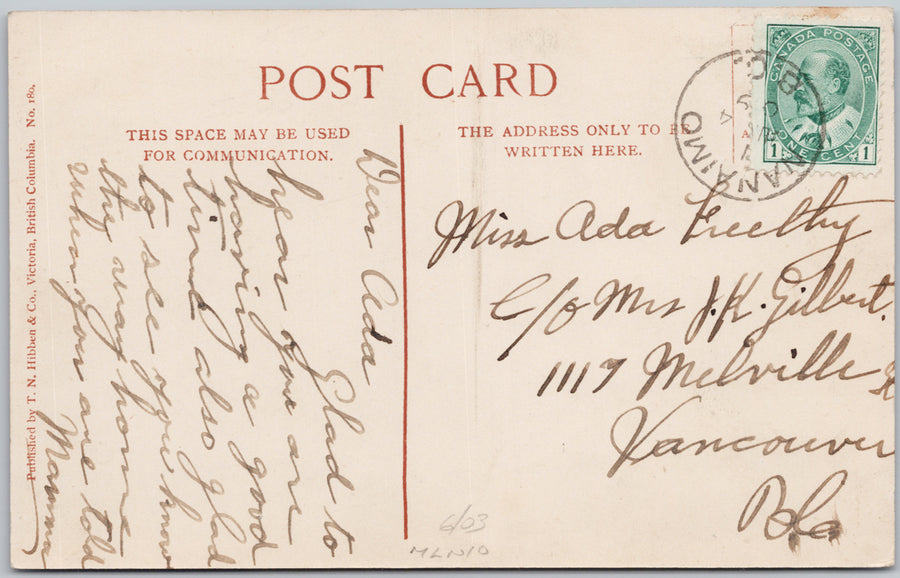 POST CARD
THIS SPACE MAY BE USED
FOR COMMUNICATION.
THE ADDRESS ONLY TO BE
WRITTEN HERE.
CANADA POSTAGE
1 ONE CENT 1
NANAIMO
B.C.
Dear Ada
Glad to
hear you are
having a good
time also glad
to see you know
the way home
when you are told
Mamma
Miss Ada Freethy
C/o Mrs J.K. Gilbert
1117 Melville St
Vancouver
B.C.
6/03
MLN10
Published by T. N. Hibben & Co., Victoria, British Columbia. No. 180.